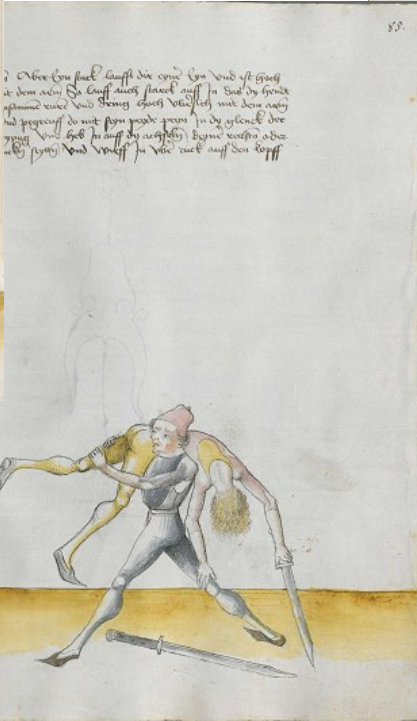 85.
Aber Eyn stuck laufft dir eyner Eyn Vnd ist hoch
mit dem arm So lauff auch starck auff In das dy hende
rure Vnd dring hoch Vbersich mit dem arm
Vnd pegreuff do mit seyn peyde peyn In dy glenck der
Vnd heb In auff dy achseln deyne rechte oder
Vnd wurff In Vber ruck auff den kopff